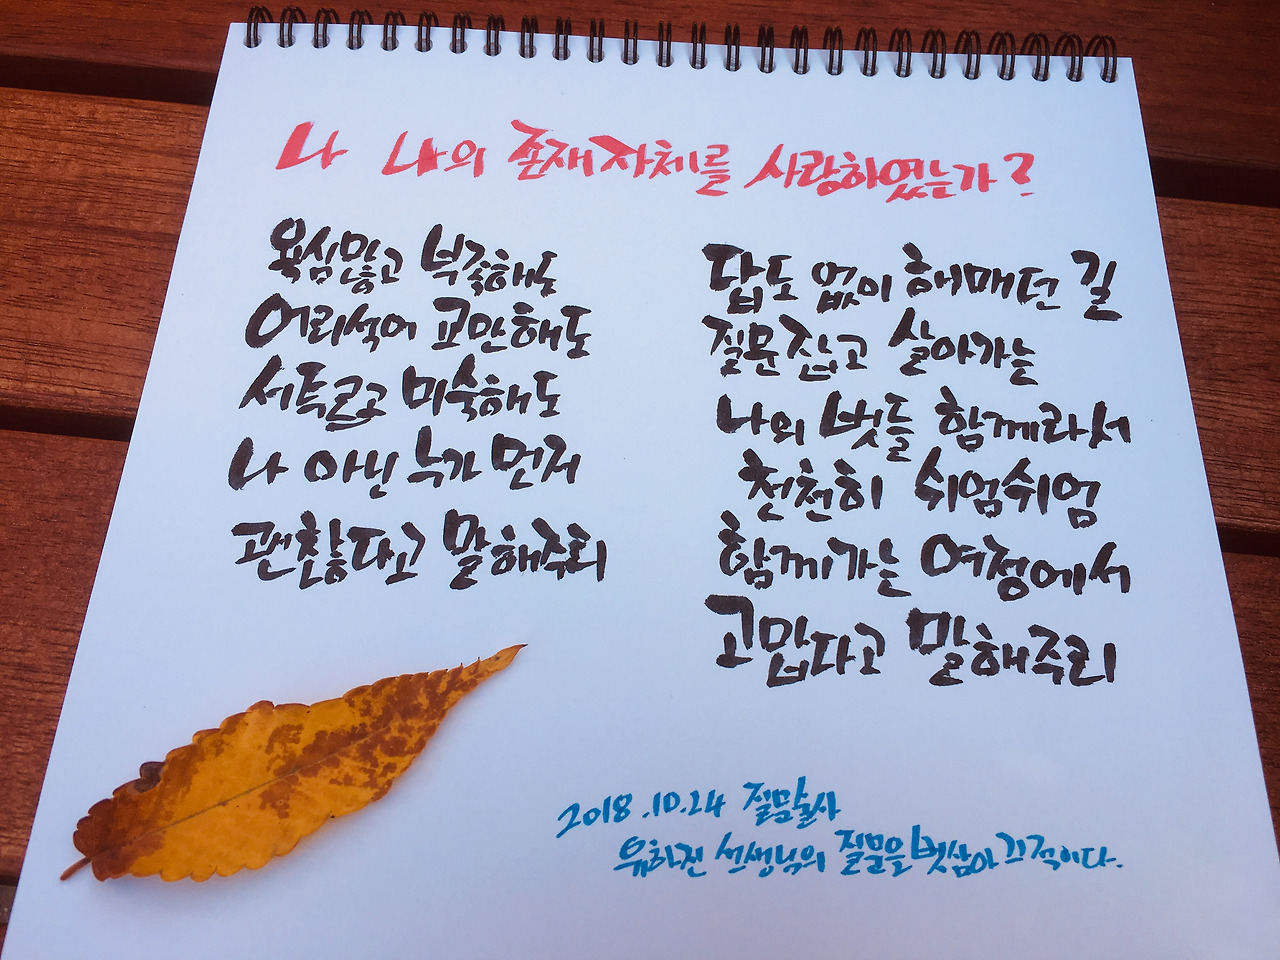 나 나의 존재자체를 사랑하였는가?
욕심많고 부족해도
어리석어 교만해도
서툴르고 미숙해도
나 아닌 누가 먼저
괜찮다고 말해주리
답도 없이 헤매던 길
질문잡고 살아가는
나의 벗들 함께라서
천천히 쉬엄쉬엄
함께가는 여정에서
고맙다고 말해주리
2018.10.24 질맘술사
유하진 선생님의 질문을 벗삼아 끄적이다.